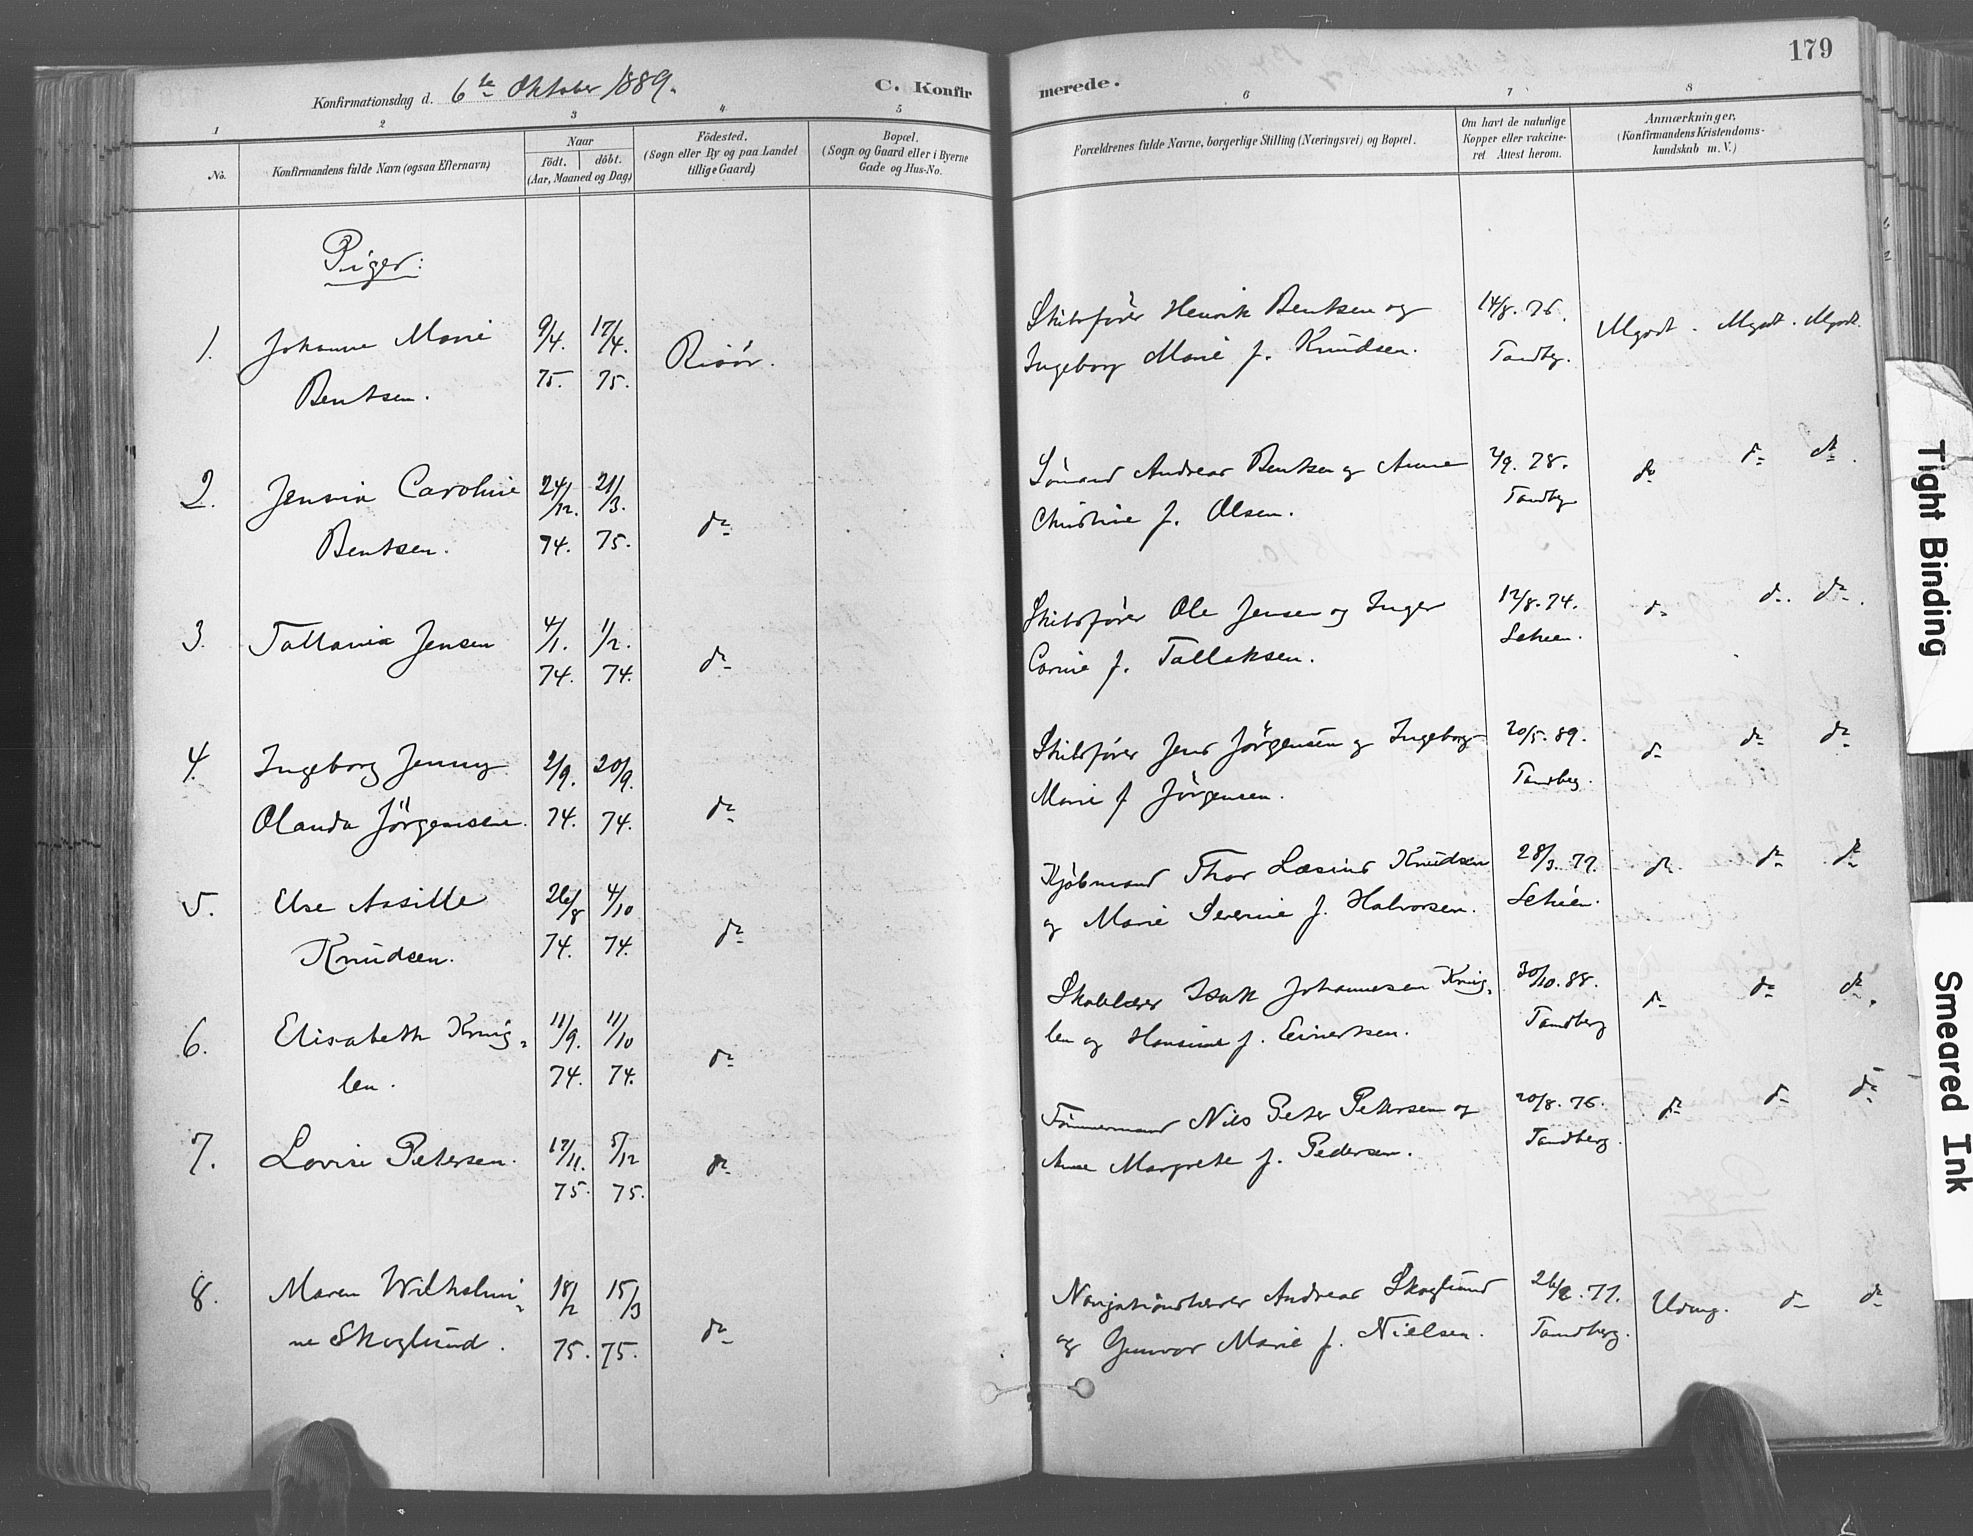 179
Konfirmationsdag d. 6te Oktober 1889.
C. Konfirmerede.
1 2 3 4 5 6 7 8
No.
Konfirmandens fulde Navn (ogsaa Efternavn)
Naar
födt. döbt.
(Aar, Maaned og Dag)
Födested.
(Sogn eller By og paa Landet
tillige Gaard)
Bopæl.
(Sogn og Gaard eller i Byerne
Gade og Hus-No.
Forældrenes fulde Navne, borgerlige Stilling (Næringsvei) og Bopæl.
Om havt de naturlige
Kopper eller vakcine-
ret Attest herom.
Anmærkninger,
(Konfirmandens Kristendoms-
kundskab m. V.)
Piger:
1. Johanne Marie 9/4. 17/4. Risör. Skibsfører Henrik Bentsen og 14/8. 76. Mgodt. Mgodt. Mgodt.
Bentsen. 75. 75. Ingeborg Marie f. Knudsen. Tandbg.
2. Jensia Caroline 24/12. 21/3. do Sømand Andreas Bentsen og Anne 2/9. 78. do do do.
Bentsen. 74. 75. Christine f. Olsen. Tandbg
3. Tallania Jensen 4/1. 1/2. do Skibsfører Ole Jensen og Inger 12/8. 74. do do. do.
74. 74. Carine f. Tallaksen. Scheen.
4. Ingeborg Jenny 2/9. 20/9. do Skibsfører Jens Jörgensen og Ingeborg 20/5. 89. do do do
Olanda Jörgensen. 74. 74. Marie f Jörgensen. Tandberg.
5. Else Assille 26/8 4/10 do Kjøbmand Thor Læsius Knudsen 28/3. 77. do. do do
Knudsen. 74. 74. og Marie Severine f. Halvorsen. Scheen.
6. Elisabeth Kring- 11/9. 11/10 do Skolelærer Isak Johannesen Kring- 30/10. 88. do do do.
len. 74. 74. len og Hansine f. Eivertsen. Tandberg
7. Lovise Petersen. 17/11. 5/12 do Tömmermand Nils Peter Petersen og 20/8. 76. do do do
75. 75. Anne Margrete f. Pedersen. Tandberg.
8. Maren Wilhelmi- 18/2 15/3 do Navigationslærer Andreas Skoglund 26/2. 77. Udmg. do do
ne Skoglund. 75. 75. og Gunvor Marie f. Nielsen. Tandberg.
Tight Binding
Smeared Ink